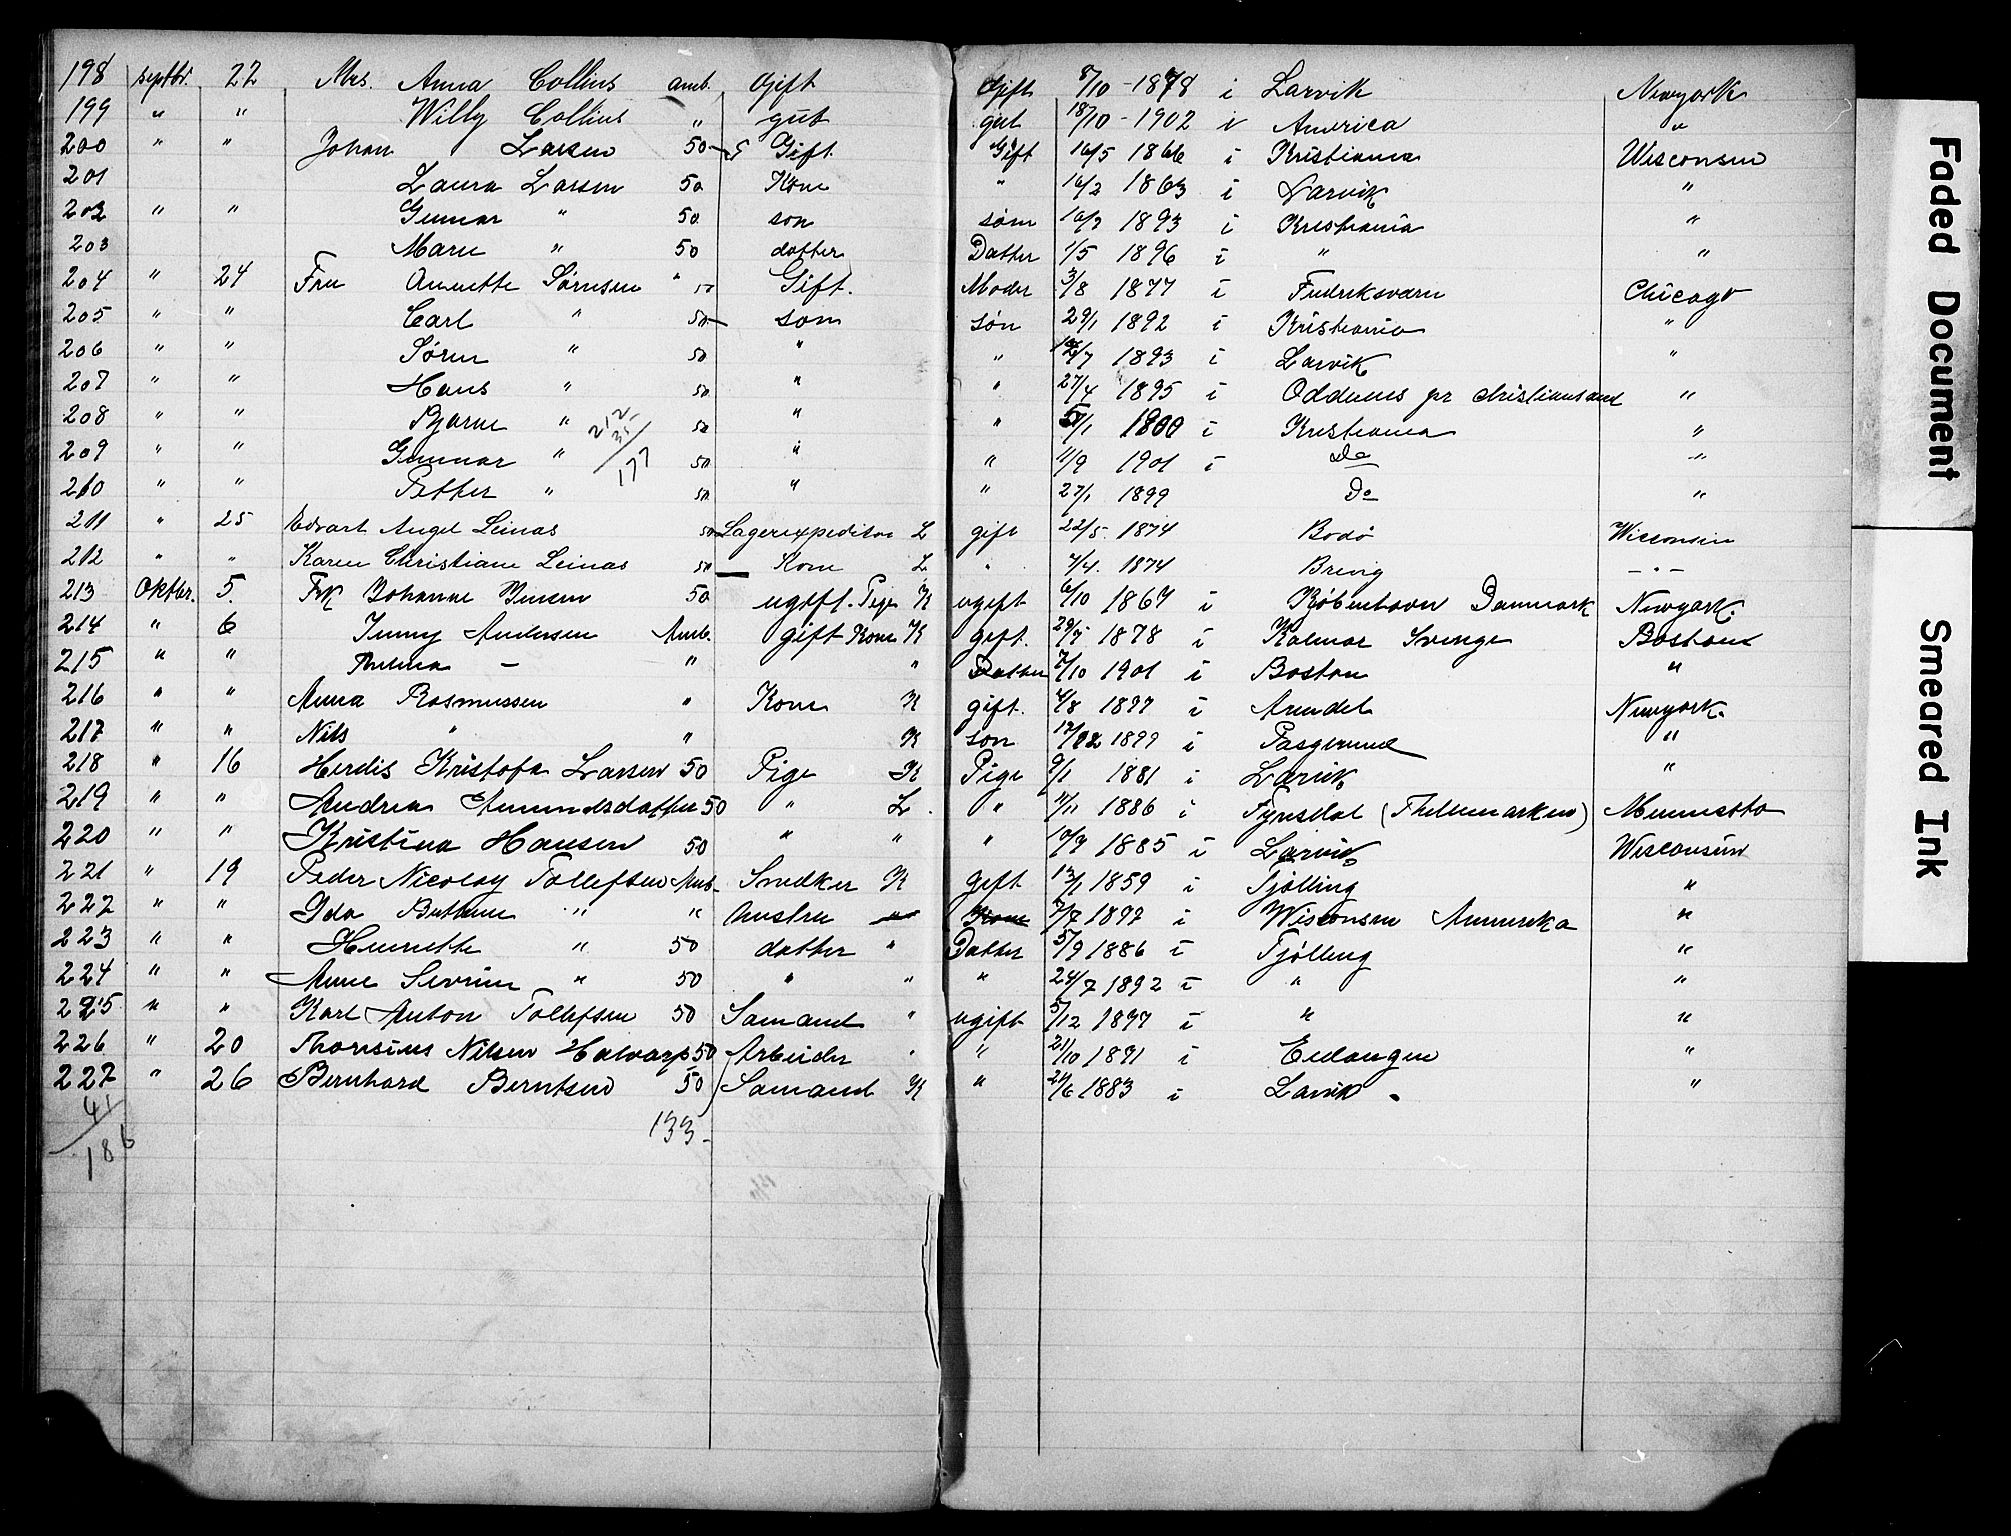 198 septbr. 22 Mrs. Anna Collins amb. Gift Gift 8/10 - 1878 i Larvik Newyork
199 " " Willy Collins " gut gut 18/10 - 1902 i America "
200 " " Johan Larsen 50 Gift. Gift 16/5 1866 i Kristiania Wisconsin
201 Laura Larsen 50 Kone " 16/2 1863 i Larvik "
202 " " Gunnar " 50 son søn 16/2 1893 i Kristiania "
203 Marie " 50 datter Datter 1/5 1896 i " "
204 " 24 Fru Annette Sørensen " 50 Gift. Moder 3/8 1877 i Frederiksværn Chicago
205 " " Carl " 50 søn søn 29/1 1892 i Kristiania "
206 " " Søren " 50 " " /7 1893 i Larvik "
207 " " Hans " 50 " " 27/4 1895 i Oddernes pr christiansand "
208 " " Bjarne " 50 " " 5/1 1800 i Kristiania "
209 " " Gunnar " 50 " " 11/9 1901 i Do "
210 " " Petter " 50 " " 27/1 1899 Do "
212
31
177
211 " 25 Edvart Angel Leinas 50 Lagerexpeditør L gift 22/5 1874 Bodø Wisconsin
212 " " Karen Christiane Leinas 50 Kone L " 7/4. 1874 Brevig - " -
213 Oktbr. 5. Frk Johanne Jensen 50 ugift. Pige K ugift 6/10 1867 i Kjøbenhavn Danmark Newyork.
214 " 6 Jenny Andersen Amb. gift Kone K gift. 29/5 1878 i Kalmar Sverige Boston
215 " " Thelma - " " Datter 7/10 1901 i Boston "
216 " " Anna Rasmussen " Kone K gift. 4/8 1877 i Arendal Newyork.
217 " " Nils " " K søn 17/12 1899 i Porsgrund "
218 " 16 Herdis Kristofa Larsen 50 Pige K Pige 9/1 1881 i Larvik "
219 " " Andrea Amundsdatter 50 " L. " 11/11 1886 i Fyrisdal (Thellemarken) Minnesota
220 " " Kristina Hansen 50 " " " 10/9 1885 i Larvik Wisconsin
221 " 19 Peder Nicolay Tollefsen Amb. Snedker K gift 13/1 1859 i Tjølling "
222 " " Ida Bethine " " hustru " Kone 7/7 1897 i Wisconsin Amerika "
223 " " Henriette " 50 datter " Datter 5/9 1886 i Tjølling "
224 " " Anne Severine " 50 " " " 24/7 1892 i " "
225 " " Karl Anton Tollefsen 50 Sømand " ugift 5/12 1897 i " "
226 " 20 Thorsinus Nilsen Halvarp 50 Arbeider " " 21/10 1891 i Eidanger "
227 " 26 Bernhard Berntsen 50 Sømand K " 24/6 1883 i Larvik. "
41
186
133-
Faded Document
Smeared Ink